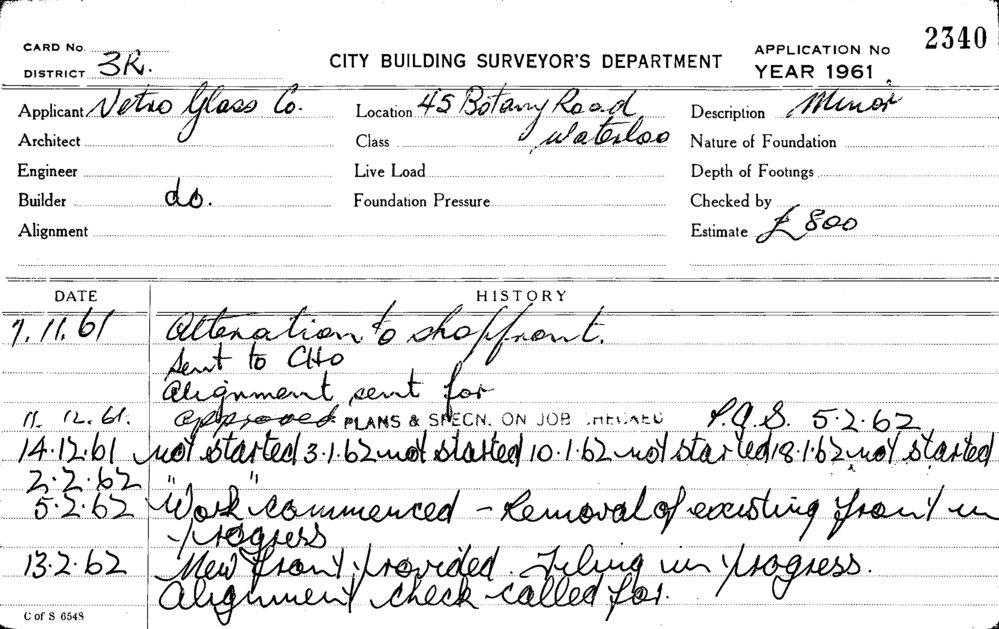 2340
CARD No.
CITY BUILDING SURVEYOR'S DEPARTMENT
APPLICATION No
DISTRICT 3R.
YEAR 1961
Applicant Vetro Glass Co.
Location 45 Botany Road
Description Minor
Architect
Class Waterloo
Nature of Foundation
Engineer
Live Load
Depth of Footings
Builder do.
Foundation Pressure
Checked by
Alignment
Estimate £800
DATE HISTORY
7.11.61 Alteration to shopfront.
Sent to CHO
Alignment sent for
11.12.61. approved PLANS & SPECN. ON JOB CHECKED P.Q.S. 5.2.62
14.12.61 not started 3.1.62 not started 10.1.62 not started 18.1.62 not started
2.2.62 " "
5.2.62 Work commenced - Removal of existing front in
progress
13.2.62 New front provided. Tiling in progress.
Alignment check called for.
C of S 6548